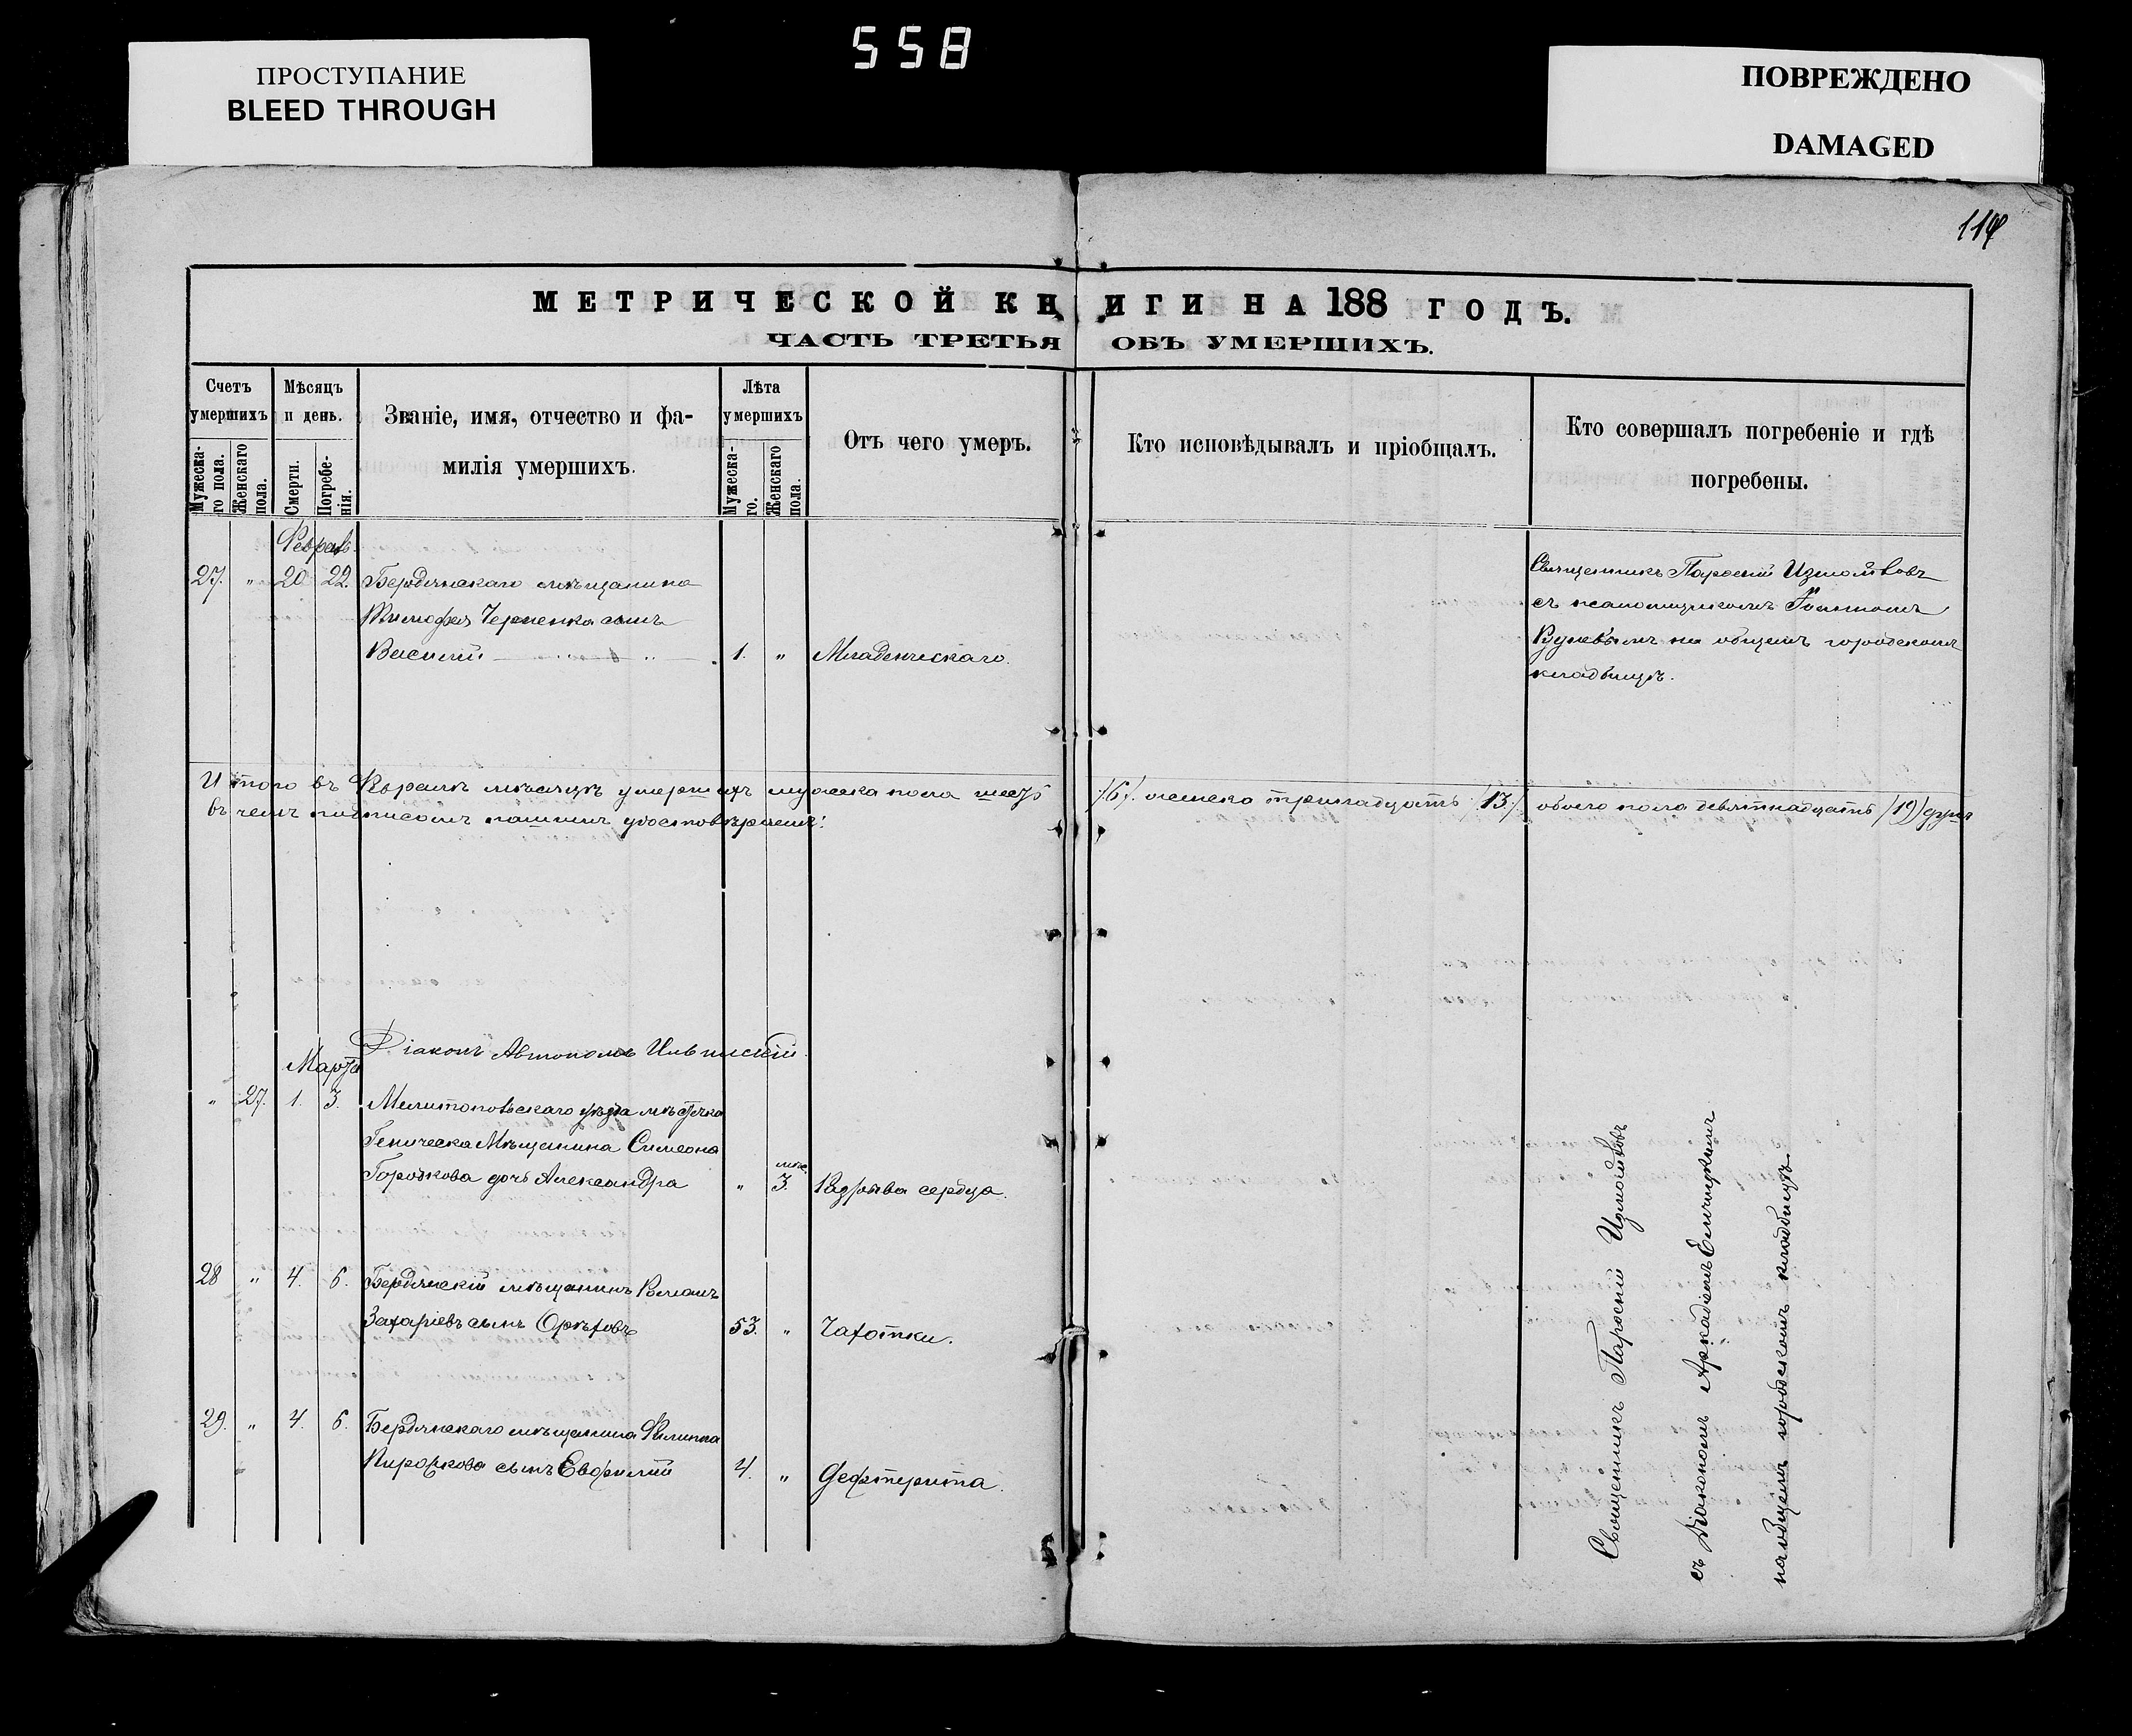 558
ПРОСТУПАНИЕ
BLEED THROUGH
ПОВРЕЖДЕНО
DAMAGED
119
МЕТРИЧЕСКОЙ КНИГИ НА 188 ГОДЪ.
ЧАСТЬ ТРЕТЬЯ ОБЪ УМЕРШИХЪ.
Счетъ умершихъ
Мужеска-го пола.
Женскаго пола.
Мѣсяцъ и день.
Смерти.
Погребе-нія.
Званіе, имя, отчество и фа-
милія умершихъ.
Лѣта умершихъ
Мужеска-го.
Женскаго пола.
Отъ чего умеръ.
Кто исповѣдывалъ и пріобщалъ.
Кто совершалъ погребеніе и гдѣ
погребены.
Феврал.
27. " 20 22. Бердянскаго мѣщанина
Тимофея Черненка сынъ
Василій 1. " Младенческаго.
Священникъ Паросній Измайловъ
съ псаломщикомъ Іоанномъ
на общемъ городскомъ
кладбищѣ.
Итого въ Февралѣ мѣсяцѣ умершихъ мужска пола шесть /6/. женска тринадцать /13/. обоего пола девятнадцать /19/ душъ
въ чемъ подписомъ нашимъ удостовѣряемъ:
Діаконъ Автономъ
Марта
" 27. 1. 3. Мелитопольскаго уѣзда мѣстечка
Геническа Мѣщанина Симеона
Горожкова дочь Александра " 3. мѣс. Разрыва сердца.
28 " 4. 6. Бердянскій мѣщанинъ Романъ
Захаріевъ сынъ Орѣховъ 53. " Чахотки.
29. " 4. 6. Бердянскаго мѣщанина Филиппа
Пирожкова сынъ Евфимій 4. " Дефтерита.
Священникъ Паросній Измайловъ
съ Діакономъ Аркадіемъ
на общемъ городскомъ кладбищѣ